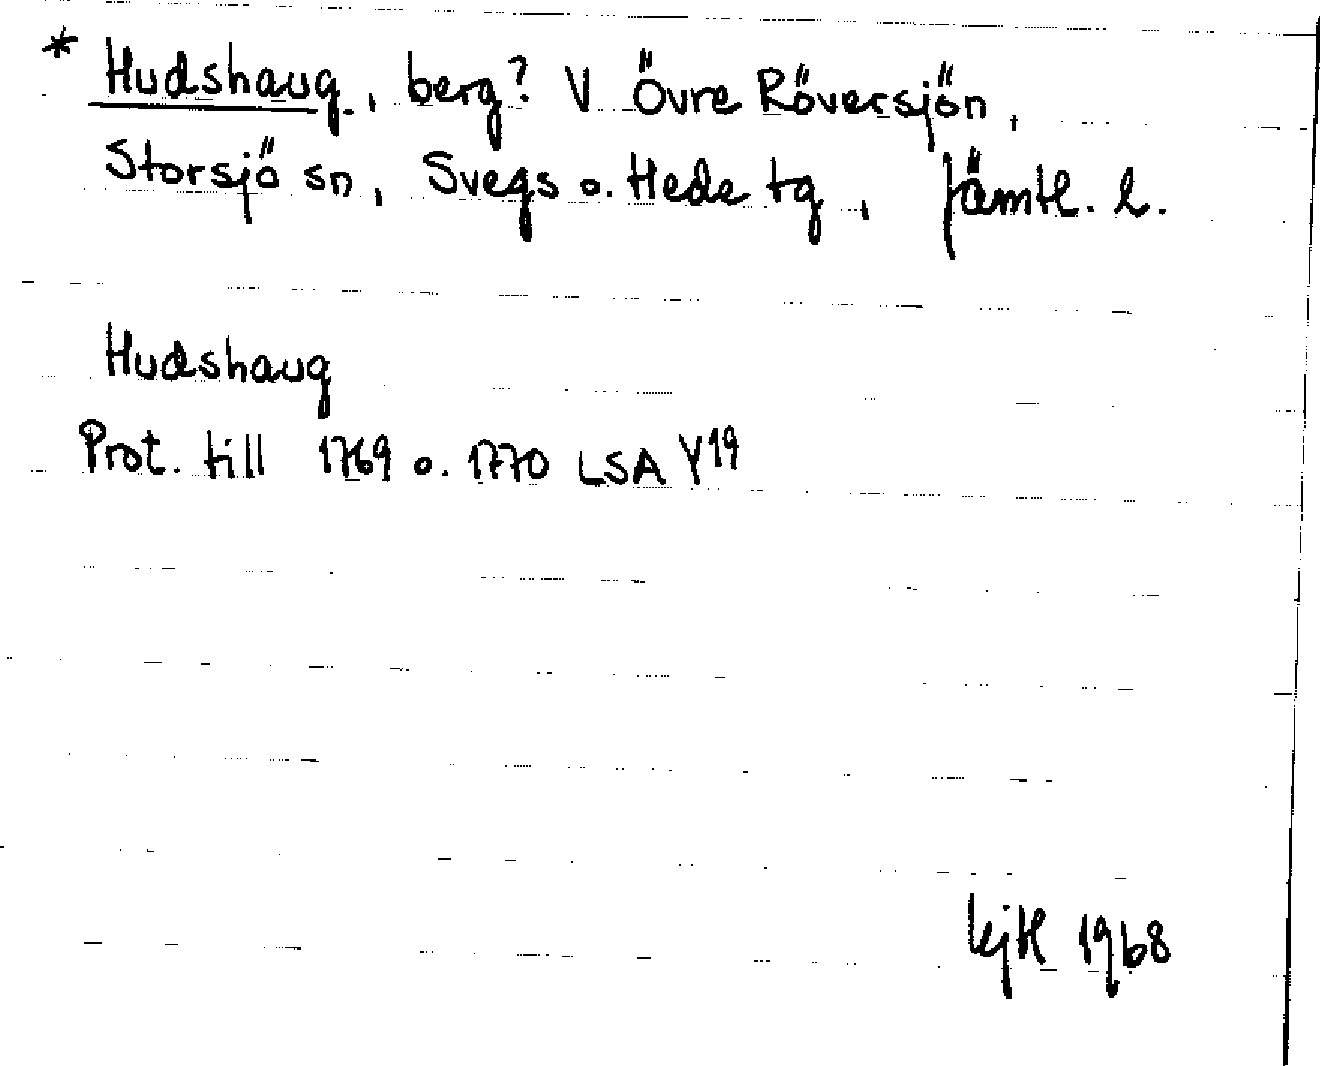 * Hudshaug, berg? V Övre Röversjön,
Storsjö sn, Svegs o. Hede tg, Jämtl. l.
Hudshaug
Prot. till 1769 o. 1770 LSA Y19
1968